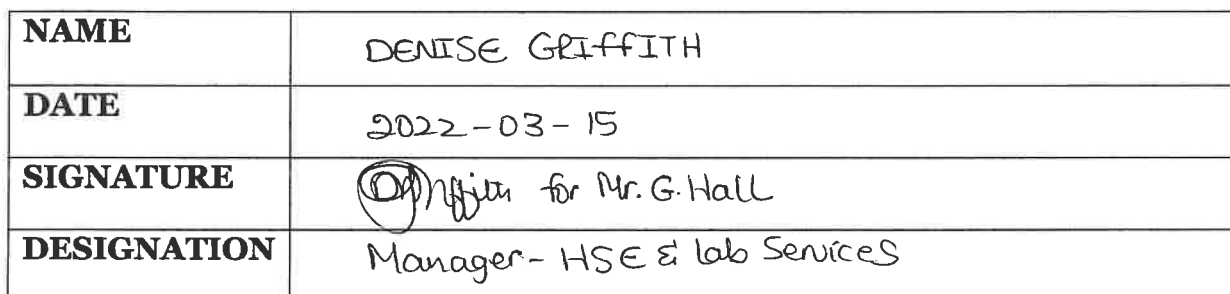 NAME DENISE GRIFFITH
DATE 2022-03-15
SIGNATURE DGriffith for Mr. G. Hall
DESIGNATION Manager - HSE & lab Services